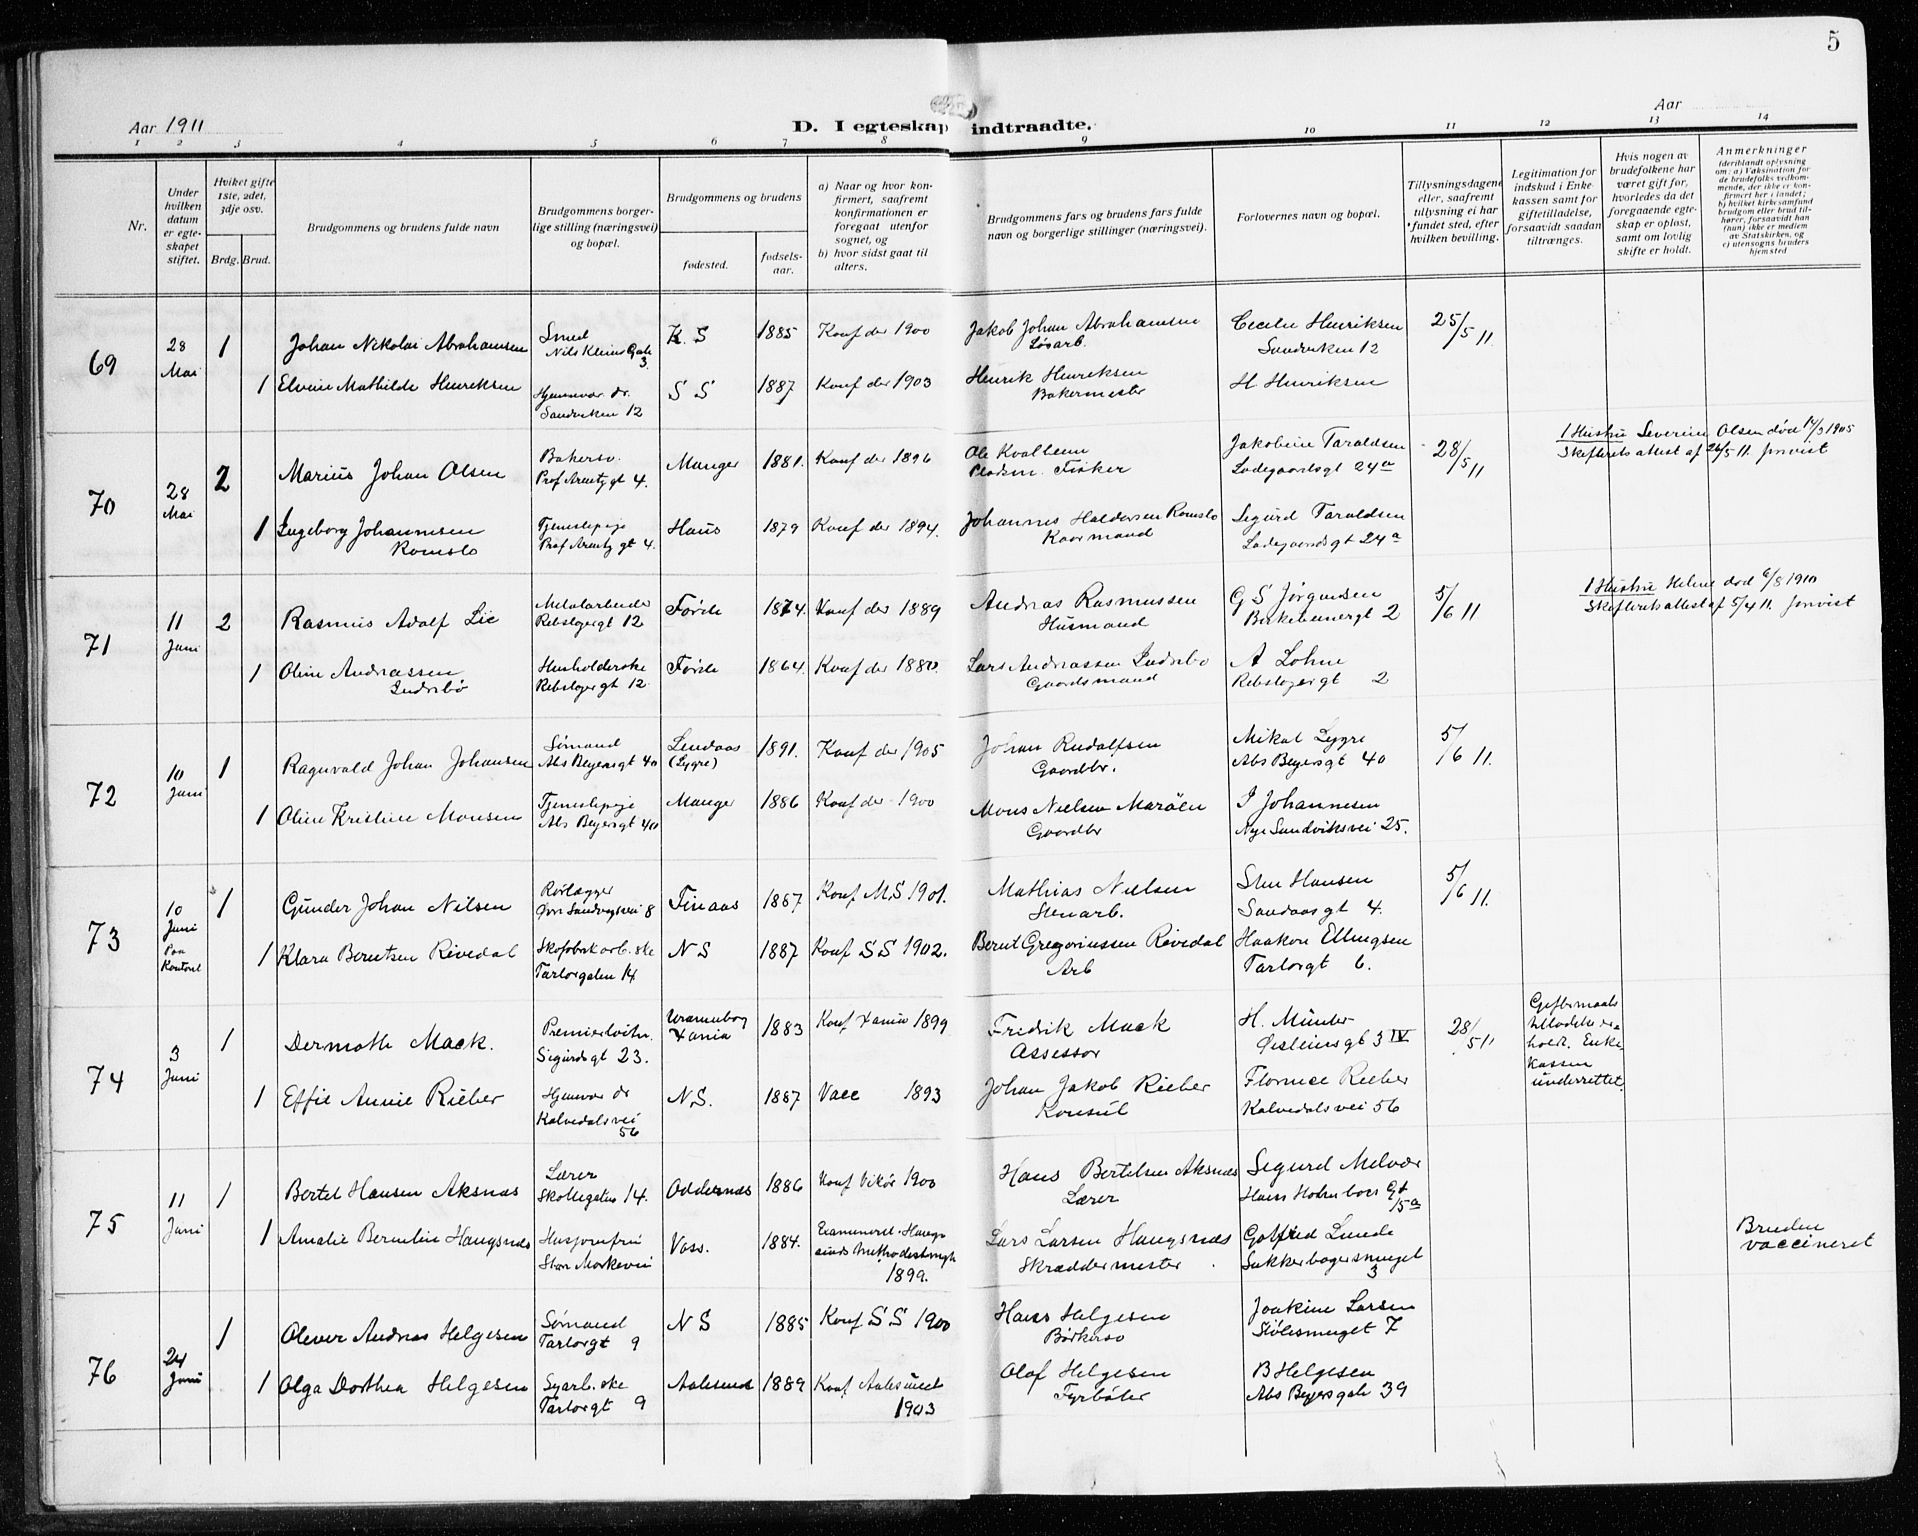 5
Aar 1911
D. I egteskap indtraadte.
Aar
1 2 3 4 5 6 7 8 9 10 11 12 13 14
Nr.
Under hvilken datum er egteskapet stiftet.
Hviket gifte 1ste, 2det, 3dje osv.
Brdg. Brud.
Brudgommens og brudens fulde navn
Brudgommens borgerlige stilling (næringsvei) og bopæl.
Brudgommens og brudens
fødested.
fødselsaar.
a) Naar og hvor konfirmert, saafremt konfirmationen er foregaat utenfor sognet, og
b) hvor sidst gaat til alters.
Brudgommens fars og brudens fars fulde navn og borgerlige stillinger (næringsvei).
Forlovernes navn og bopæl.
Tillysningsdagene eller, saafremt tillysning ei har fundet sted, efter hvilken bevilling.
Legitimation for indskud i Enkekassen samt for giftetilladelse, forsaavidt saadan tiltrænges.
Hvis nogen av brudefolkene har været gift før, hvorledes da det foregaaende egteskap er opløst, samt om lovlig skifte er holdt.
Anmerkninger
(deriblandt oplysning om: a) Vaksination for de brudefolks vedkommende, der ikke er konfirmert her i landet; b) hvilket kirkesamfund brudgom eller brud tilhører, forsaavidt han (hun) ikke er medlem av Statskirken, og c) utensogns bruders hjemsted
69
28 Mai
1 Johan Nikolai Abrahamsen Smed Nils Kleins Gate 3 K S 1885 Konf der 1900 Jakob Johan Abrahamsen Løsarb. Cecilie Henriksen Sandviken 12 25/5 11
1 Elvine Mathilde Henriksen Hjemmevær. dr. Sandviken 12 S S 1887 Konf der 1903 Henrik Henriksen Bakermester H Henriksen
70
28 Mai
2 Marius Johan Olsen Bakersv. Prof Arentz gt 4. Manger 1881. Konf der 1896 Ole Kvalheim Pladsm. Fisker Jakobine Taraldsen Ladegaardsgt 24a 28/5 11 1 Hustru Severine Olsen død 17/3 1905 Skifterets attest af 26/5 11. forvist
1 Ingeborg Johannesen Romslo Tjenestepige Prof Arentz gt 4. Haus 1879 Konf der 1894. Johannes Haldorsen Romslo Kaarmand Sigurd Taraldsen Ladegaardsgt 24a
71
11 Juni
2 Rasmus Adolf Lie Metalarbeider Rebslagergt 12 Førde 1874. Konf der 1889 Andreas Rasmussen Husmand G S Jørgensen Birkebeinergt 2 5/6 11 1 Hustru Helene død 6/8 1910 Skifterets attest af 5/4 11. forvist
1 Oline Andreassen Indrebø Husholderske Rebslagergt 12 Førde 1864. Konf der 1880. Lars Andreassen Indrebø Gaardsmand A Lohne Rebslagergt 2
72
10 Juni
1 Ragnvald Johan Johansen Sømand Abs Beyersgt 40 Lindaas (Lygre) 1891. Konf der 1905 Johan Rudolfsen Gaardbr. Mikal Lygre Abs Beyersgt 40 5/6 11.
1 Oline Kristine Monsen Tjenestepige Abs Beyersgt 40 Manger 1886 Konf der 1900 Mons Nielsen Marøen Gaardbr I Johannesen Nye Sandviksvei 25.
73
10 Juni Paa Kontoret
1 Gunder Johan Nilsen Rørlægger Øvre Sandvigsvei 8 Finaas 1887 Konf M.S 1901. Mathias Nielsen Stenarb. Sten Hansen Sandaasgt 4. 5/6 11.
1 Klara Berntsen Rivedal Skofabrikarb.ske Tartorgaten 14 N S 1887 Konf S S 1902. Bernt Gregoriussen Rivedal Arb Haakon Ellingsen Tartorgt 6.
74
3 Juni
1 Dermoth Mack. Premierløitn. Sigurdsgt 23. Uranienborg Xania 1883 Konf Xania 1899 Fredrik Mack Assessor H. Münter Øisteinsgt 3 IV 28/5 11 Giftermaals tilladelse foreholdt. Enkekassen underrettet.
1 Effie Annie Rieber Hjemvær dr Kalvedalsvei 56 N.S. 1887 Vacc 1893 Johan Jakob Rieber Konsul Florence Rieber Kalvedalsvei 56
75
11 Juni
1 Bertel Hansen Aksnes Lærer Skottegaten 14. Oddernes 1886 Konf Vikør 1900 Hans Bertelsen Aksnes Lærer Sigurd Melvær Hans Holmboes Gt 15a
1 Amalie Berntine Haugsnes Husjomfru Store Markevei Voss. 1884. Lars Larsen Haugsnes Skræddermester Gotfred Lunde Sukkerbagersmuget 3 Bruden vaccineret
1899.
76
24 Juni
1 Oliver Andreas Helgesen Sømand Tartorgt 9 N S 1885 Konf S S 1900 Hans Helgesen Bødkersv Joakim Larsen Stølesmuget 7
1 Olga Dorthea Helgesen Syarb.ske Tartorgt 9 Aalesund 1889 Konf Aalesund 1903 Olaf Helgesen Fyrbøter B Helgesen Abs Beyersgate 39